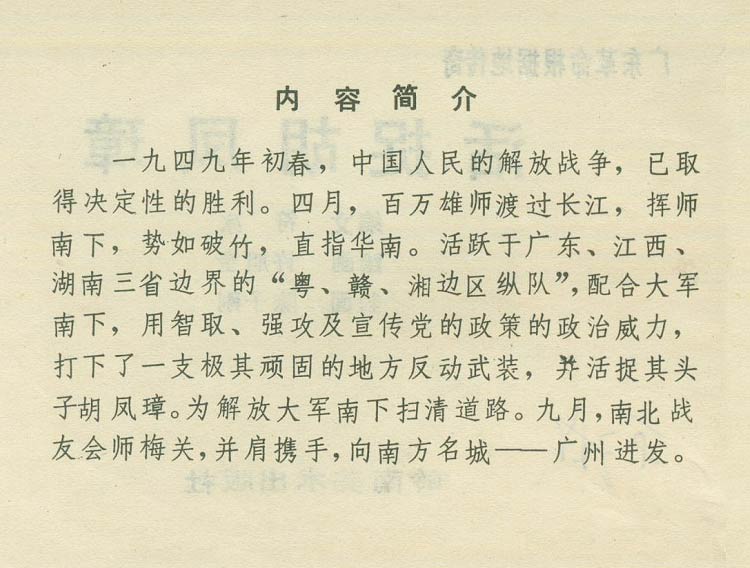 内容简介
一九四九年初春，中国人民的解放战争，已取
得决定性的胜利。四月，百万雄师渡过长江，挥师
南下，势如破竹，直指华南。活跃于广东、江西、
湖南三省边界的“粤、赣、湘边区纵队”，配合大军
南下，用智取、强攻及宣传党的政策的政治威力，
打下了一支极其顽固的地方反动武装，并活捉其头
子胡凤璋。为解放大军南下扫清道路。九月，南北战
友会师梅关，并肩携手，向南方名城——广州进发。